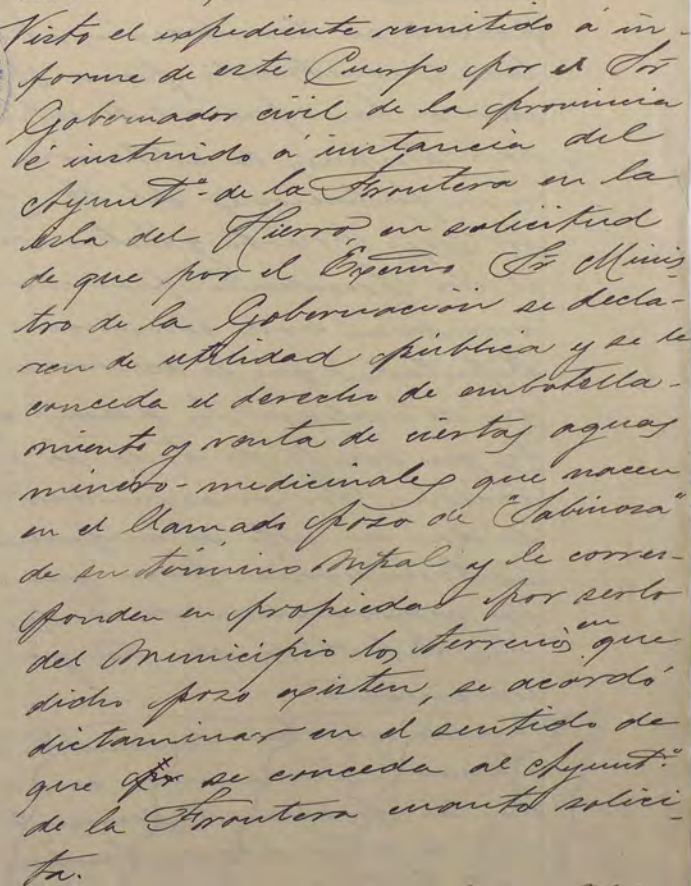 Visto el expediente remitido á in-
forme de este Cuerpo por el Sor
Gobernador civil de la provincia
é instruido á instancia del
Ayuntº de la Frontera en la
isla del Hierro, en solicitud
de que por el Excmo Sr Minis
tro de la Gobernación se decla-
ren de utilidad pública y se le
conceda el derecho de embotella-
miento y venta de ciertas aguas
minero-medicinales que nacen
en el llamado pozo de "Sabinosa"
de su término mpal y le corres-
ponden en propiedad por serlo
del Municipio los terrenos en que
dicho pozo existen, se acordó
dictaminar en el sentido de
que se conceda al Ayuntº
de la Frontera cuanto solici-
ta.